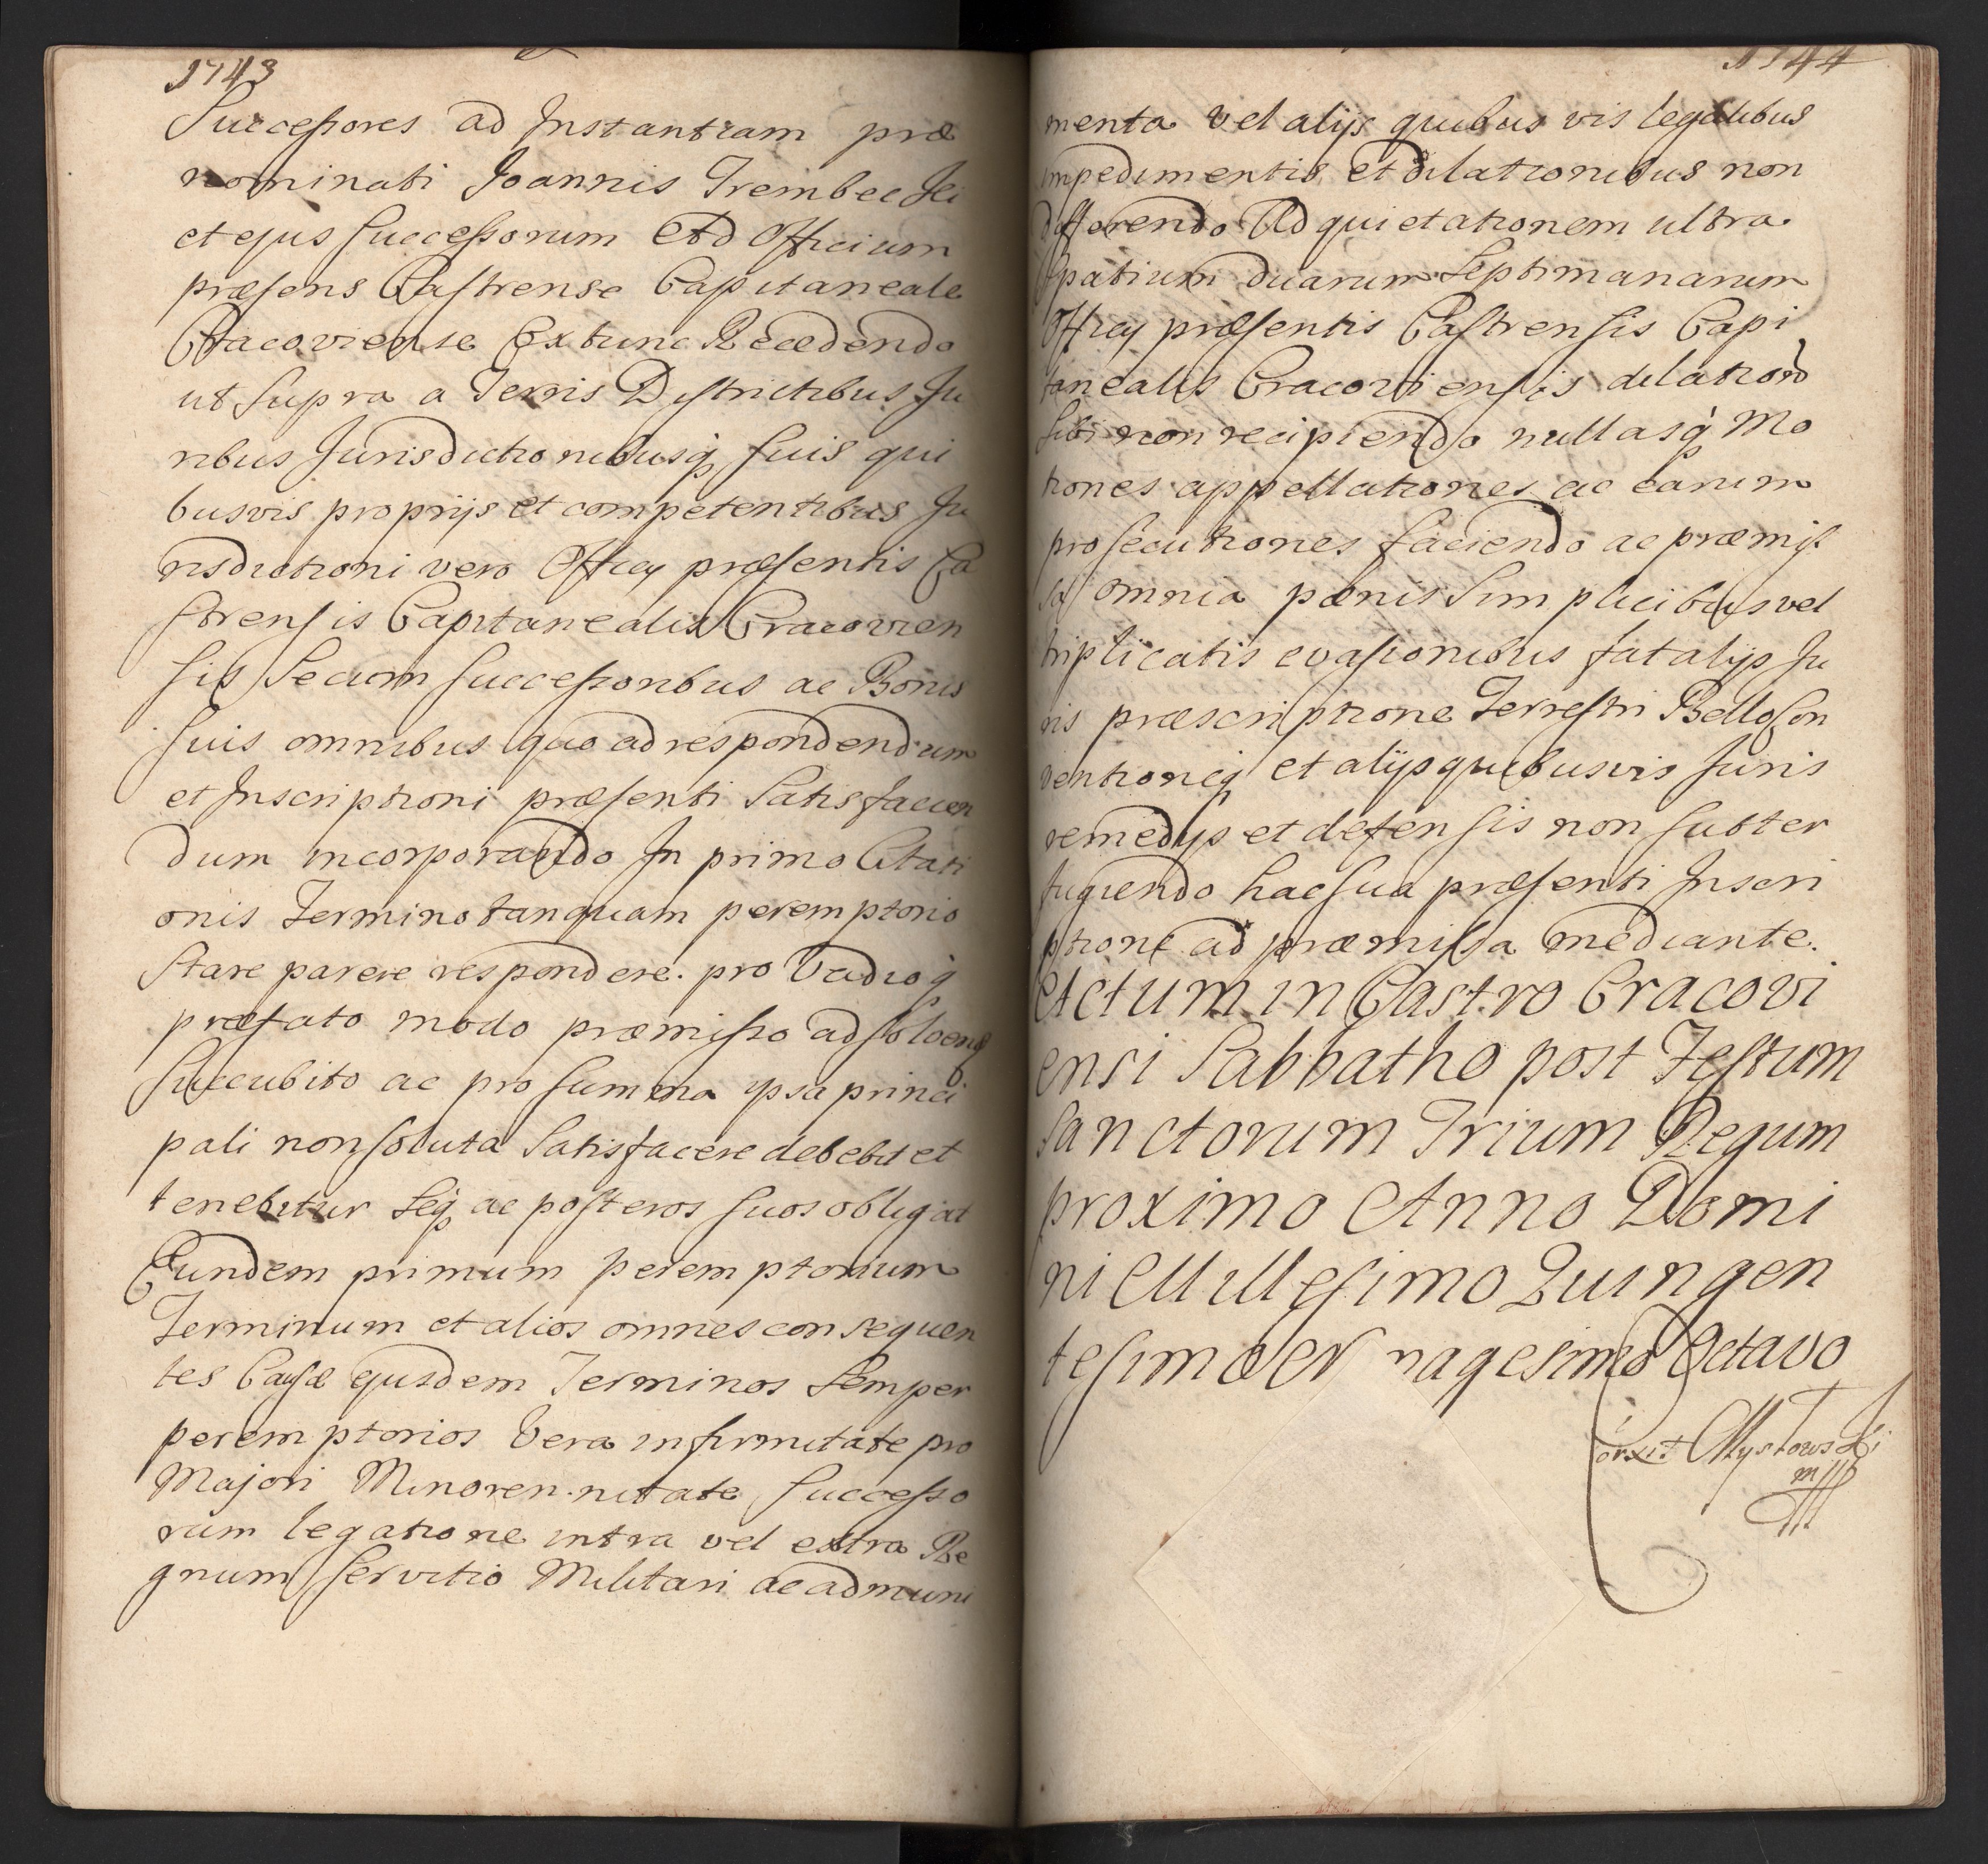 1743
Successores ad Instantiam præ
nominati Joannis Trembecki
et ejus Successorum Ad Officium
præsens Castrense Capitaneale
Cracoviense Extunc Recedendo
ut Supra a Terris Districtibus Ju
ribus Jurisdictionibusq suis qui
busvis proprijs et competentibus Ju
risdictioni vero Officij præsentis Ca
strensis Capitanealis Cracovien
sis Secum Successoribus ac Bonis
suis omnibus quo ad respondendum
et Inscriptioni præsenti Satisfacien
dum incorporando In primo Citati
onis Termino tanquam peremptorio
Stare parere respondere. pro Vadioq
præfato modo præmisso ad solvend
succubito ac pro summa ipsa princi
pali non soluta Satisfacere debebit et
tenebitur Seq ac posteros suos obligat
Eundem primum peremptorium
Terminum et alios omnes consequen
tes Causæ ejusdem Terminos Semper
peremptorios Vera infirmitate pro
Majori Minorennitate Successo
rum legatione intra vel extra Re
gnum Servitio Militari ac ad muni
1744
menta vel alijs quibus vis legalibus
impedimentis et dilationibus non
differendo Ad quietationem ultra
spatium duarum Septimanarum
Officij præsentis Castrensis Capi
tanealis Cracoviensis dilation
sibi non recipiendo nullasq Mo
tiones appellationes ac earum
prosecutiones faciendo ac præmis
sa omnia pænis Simplicibus vel
triplicatis evasionibus fatalijs Ju
ris præscriptione Terrestri Bello Con
ventioneq et alijs quibusvis Juris
remedijs et defensis non subter
fugiendo hac sua præsenti Inscri
ptione ad præmissa mediante.
Actum in Castro Cracovi
ensi Sabbatho post Festum
Sanctorum Trium Regum
proximo Anno Domi
ni Millesimo Quingen
tesimo Nonagesimo Octavo